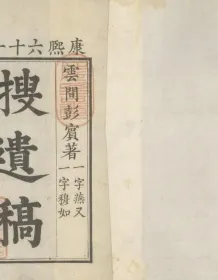 康熙六十一
雲間彭賓著
一字燕又
一字穆如
搜遺稿